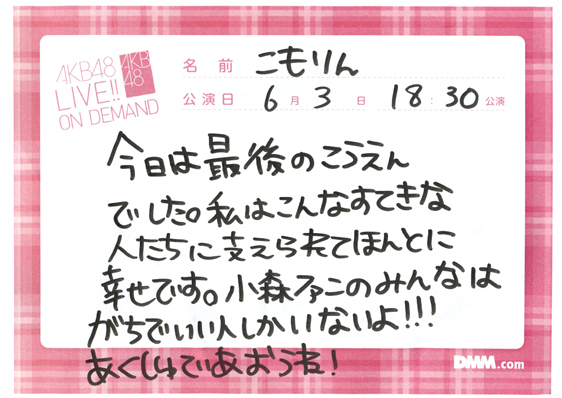 AKB48
LIVE!!
ON DEMAND
AKB
48
名前 こもりん
公演日 6月3日 18:30公演
今日は最後のこうえん
でした。私はこんなすてきな
人たちに支えられてほんとに
幸せです。小森ファンのみんなは
がちでいい人しかいないよ!!!
あくしゅであおうね!
DMM.com